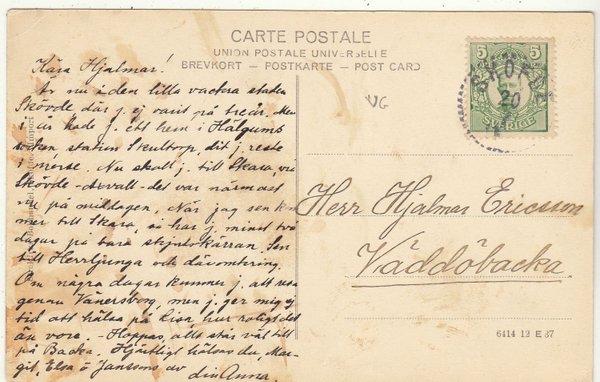 CARTE POSTALE
UNION POSTALE UNIVERSELLE
BREVKORT — POSTKARTE — POST CARD
Kära Hjalmar!
Är nu i den lilla vackra staden
Skövde där j. ej varit på tre år. Men
i år hade j. ett hem i Hälgums
socken station Skultorp, dit j. reste
i morse. Nu skall j. till Skara, via
Skövde - det var närmast
nu på middagen, När jag sen kom
mer till Skara, så har j. minst två
dagar på bara skjutskärran. Sen
till Herrljunga och däromkring.
Om några dagar kommer j. att resa
genom Vänersborg, men j. ger mig ej
tid att hälsa på huru roligt det
än vore. - Hoppas, allt står väl till
på Backa. Hjärtligt hälsas du, Mar-
git, Elsa o Janssons av
din Anna.
VG
5 5
SVERIGE
SKÖVDE
20
Herr Hjalmar Ericsson
Väddöbacka.
6414 12 E 37